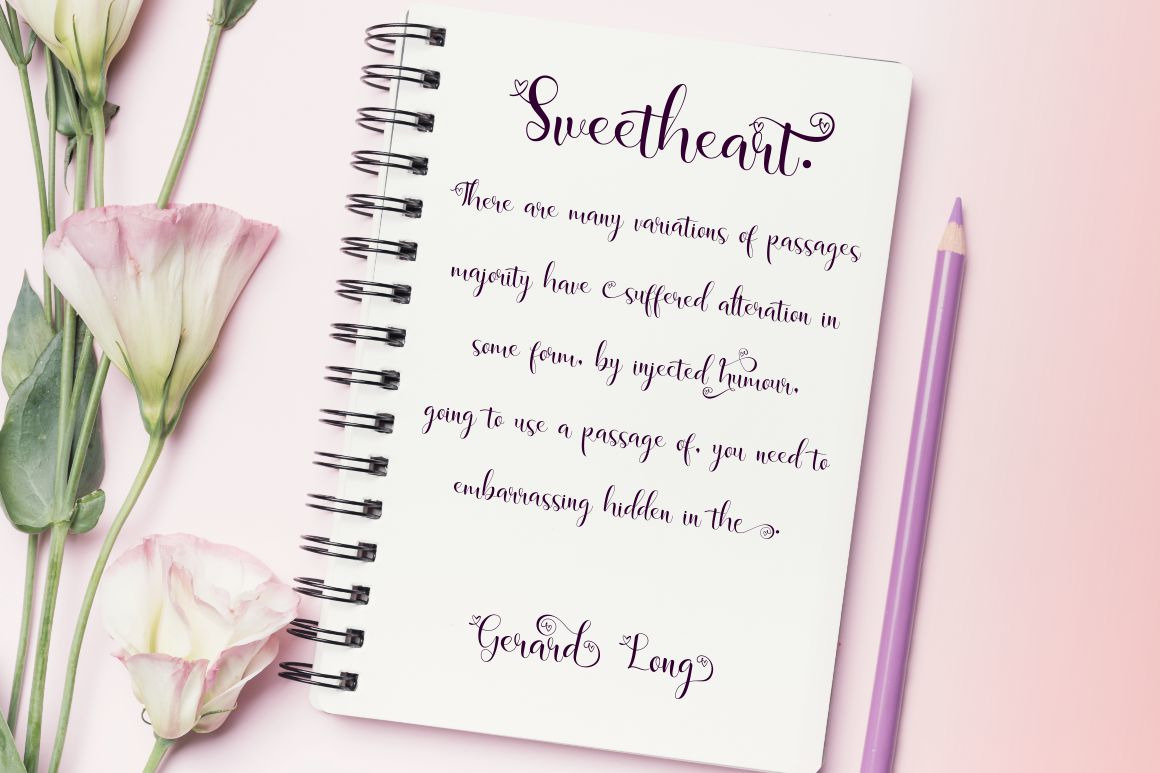 Sweetheart.
There are many variations of passages
majority have suffered alteration in
some form, by injected humour,
going to use a passage of, you need to
embarrassing hidden in the.
Gerard Long